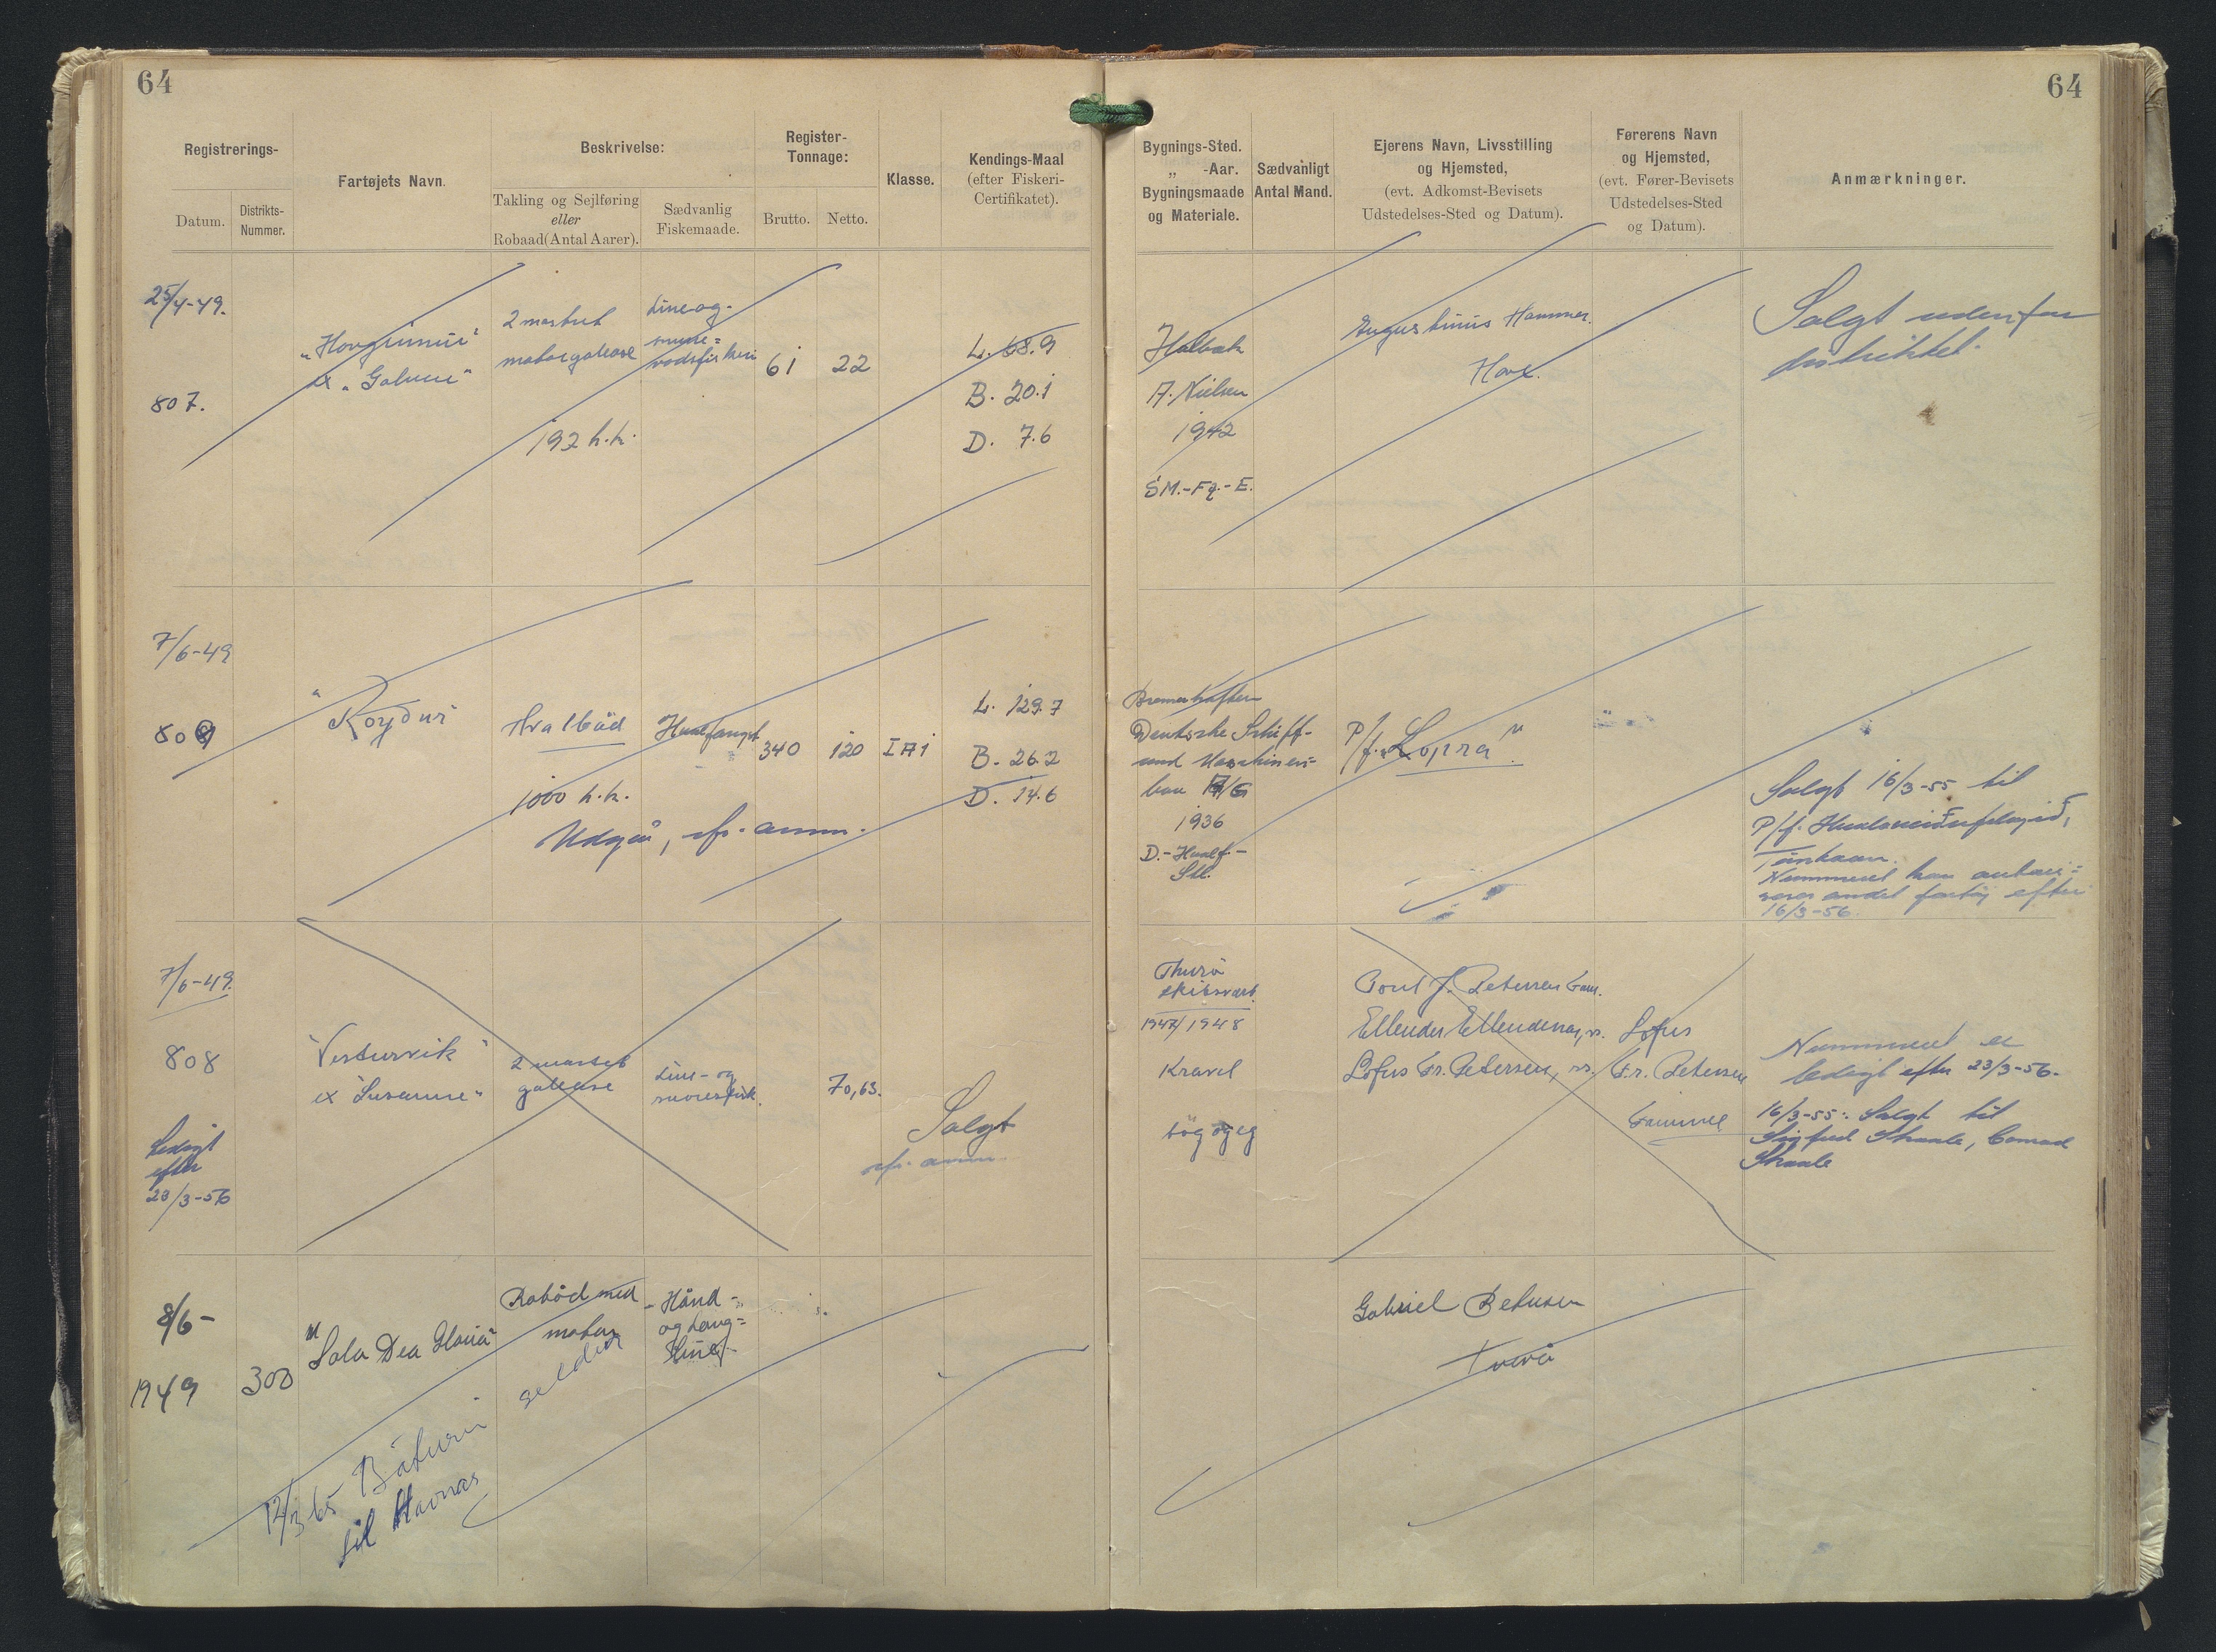 64
Registrerings-
Datum.
Distrikts-
Nummer.
Fartøjets Navn.
Beskrivelse:
Takling og Sejlføring
eller
Robaad(Antal Aarer).
Sædvanlig
Fiskemaade.
Register-
Tonnage:
Brutto.
Netto.
Klasse.
Kendings-Maal
(efter Fiskeri-
Certifikatet).
25/4-49.
807.
ex
2 mastret
motorgalease
192 h.k.
Line og-
61
22
L. 68.9
B. 20.1
D. 7.6
7/6-49
809
"Royður
Hvalbåd
1000 h.k.
Hvalfangst
340
120
I A 1
L. 129.7
B. 26.2
D. 14.6
Udgår, cfr. anm.
7/6-49.
808
Ledigt
efter
23/3-56
"Vesturvik"
ex "Susanne"
2 mastet
galease
Line- og
70,63.
Salgt
cfr. anm.
8/6-
1949
300
"Sola Dea Gloria"
Robåd med
motor
seldur
- Hånd-
og Lang=
line
12/3 65 Báturin
til Havnar
64
Bygnings-Sted.
„ -Aar.
Bygningsmaade
og Materiale.
Sædvanligt
Antal Mand.
Ejerens Navn, Livsstilling
og Hjemsted,
(evt. Adkomst-Bevisets
Udstedelses-Sted og Datum).
Førerens Navn
og Hjemsted,
(evt. Fører-Bevisets
Udstedelses-Sted
og Datum).
Anmærkninger.
Holbæk
A. Nielsen
1942
SM.-Fg.-E.
Augustinus Hammer.
Hove.
Salgt udenfor
distriktet.
Bremerhaften
Deutsche Schiff-
und Maschinen=
bau A/G
1936
D.-Hvalf.-
Stl.
P/f. "Lopra".
Salgt 16/3-55 til
P/f. Hvalaveiðufelagið,
Nummeret kan
andet fartøj efter
16/3-56.
Thurø
skibsværft.
1947/1948
Kravel
bøg og eg
Poul J. Petersen
Lofus Fr. Petersen,
Lofus
Fr. Petersen
Nummeret er
ledigt efter 23/3-56.
16/3-55: Salgt til
Sigfred Skaale, Conrad
Skaale
Gabriel Petersen